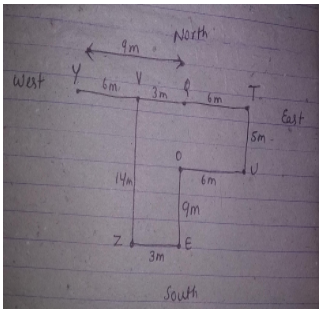 North
9m
West
Y 6m V 3m Q 6m T
East
5m
O
14m 6m U
9m
Z 3m E
South